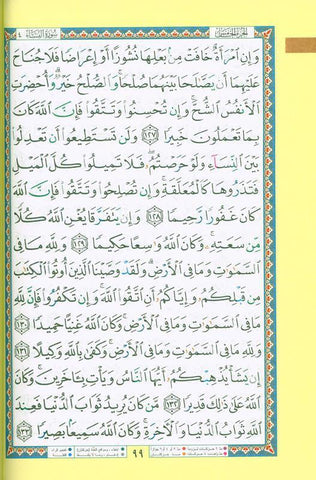 الجزء الخامس سورة النساء ٤
وَإِنِ ٱمْرَأَةٌ خَافَتْ مِنۢ بَعْلِهَا نُشُوزًا أَوْ إِعْرَاضًا فَلَا جُنَاحَ
عَلَيْهِمَا أَن يَصَّلَحَا بَيْنَهُمَا صُلْحًا وَٱلصُّلْحُ خَيْرٌ وَأُحْضِرَتِ
ٱلْأَنفُسُ ٱلشُّحَّ وَإِن تُحْسِنُوا۟ وَتَتَّقُوا۟ فَإِنَّ ٱللَّهَ كَانَ
بِمَا تَعْمَلُونَ خَبِيرًا ١٢٧ وَلَن تَسْتَطِيعُوٓا۟ أَن تَعْدِلُوا۟
بَيْنَ ٱلنِّسَآءِ وَلَوْ حَرَصْتُمْ فَلَا تَمِيلُوا۟ كُلَّ ٱلْمَيْلِ
فَتَذَرُوهَا كَٱلْمُعَلَّقَةِ وَإِن تُصْلِحُوا۟ وَتَتَّقُوا۟ فَإِنَّ ٱللَّهَ
كَانَ غَفُورًا رَّحِيمًا ١٢٨ وَإِن يَتَفَرَّقَا يُغْنِ ٱللَّهُ كُلًّا
مِّن سَعَتِهِۦ وَكَانَ ٱللَّهُ وَٰسِعًا حَكِيمًا ١٢٩ وَلِلَّهِ مَا فِى
ٱلسَّمَٰوَٰتِ وَمَا فِى ٱلْأَرْضِ وَلَقَدْ وَصَّيْنَا ٱلَّذِينَ أُوتُوا۟ ٱلْكِتَٰبَ
مِن قَبْلِكُمْ وَإِيَّاكُمْ أَنِ ٱتَّقُوا۟ ٱللَّهَ وَإِن تَكْفُرُوا۟ فَإِنَّ لِلَّهِ
مَا فِى ٱلسَّمَٰوَٰتِ وَمَا فِى ٱلْأَرْضِ وَكَانَ ٱللَّهُ غَنِيًّا حَمِيدًا ١٣٠
وَلِلَّهِ مَا فِى ٱلسَّمَٰوَٰتِ وَمَا فِى ٱلْأَرْضِ وَكَفَىٰ بِٱللَّهِ وَكِيلًا ١٣١
إِن يَشَأْ يُذْهِبْكُمْ أَيُّهَا ٱلنَّاسُ وَيَأْتِ بِـَٔاخَرِينَ وَكَانَ
ٱللَّهُ عَلَىٰ ذَٰلِكَ قَدِيرًا ١٣٢ مَّن كَانَ يُرِيدُ ثَوَابَ ٱلدُّنْيَا فَعِندَ
ٱللَّهِ ثَوَابُ ٱلدُّنْيَا وَٱلْءَاخِرَةِ وَكَانَ ٱللَّهُ سَمِيعًۢا بَصِيرًا ١٣٣
٩٩